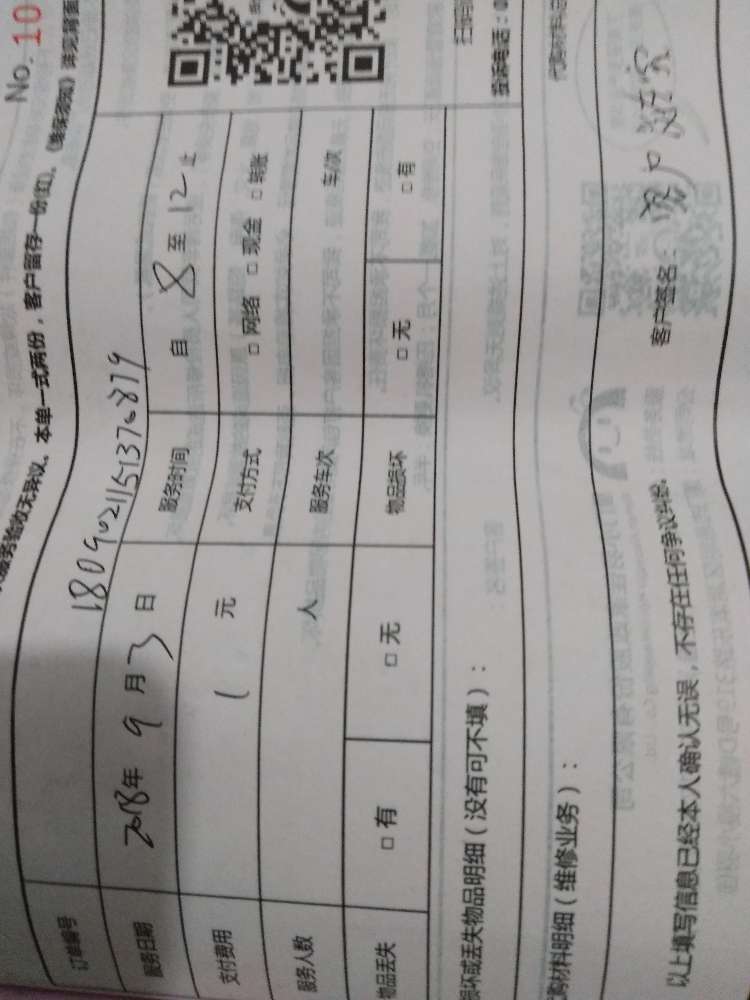 No. 10
服务验收无异议。本单一式两份，客户留存一份(红)。《
订单编号 1809021151370879
服务日期 2018年 9 月 3 日 服务时间 自 8 至 12 止
支付费用 元 支付方式 □ 网络 □ 现金 □ 转账
服务人数 人 服务车次 车/次
物品丢失 □ 有 □ 无 物品损坏 □ 无 □ 有
损坏或丢失物品明细（没有可不填）：
扫码
投诉电话：0
购材料明细（维修业务）：
以上填写信息已经本人确认无误，不存在任何争议纠纷。
客户签名：